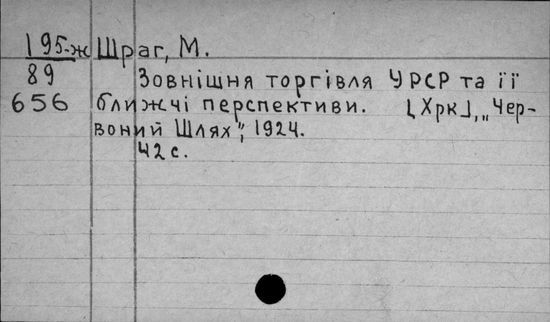 195-ж Шраг, М.
89 Зовнішня торгівля УРСР та її
656 ближчі перспективи. [Хрк], „Чер-
воний Шлях", 1924.
42 с.